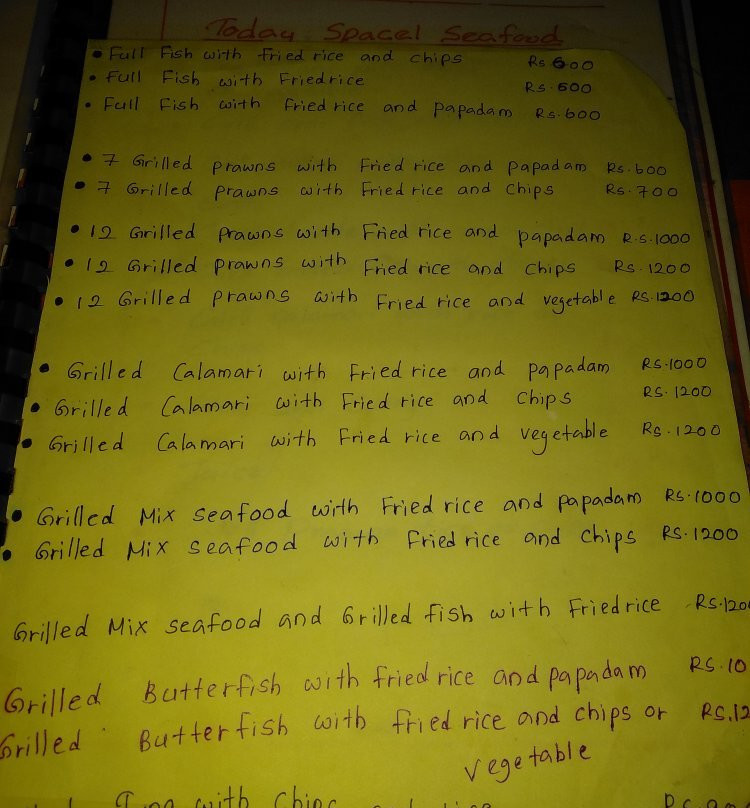 Today Spacel Seafood
• Full Fish with fried rice and chips Rs 600
• Full Fish with Friedrice Rs.600
• Full Fish with Fried rice and papadam Rs.600
• 7 Grilled prawns with Fried rice and papadam Rs.600
• 7 Grilled prawns with Fried rice and chips Rs.700
• 12 Grilled prawns with Fried rice and papadam R.s.1000
• 12 Grilled prawns with Fried rice and chips Rs.1200
• 12 Grilled prawns with Fried rice and vegetable Rs.1200
• Grilled Calamari with Fried rice and papadam Rs.1000
• Grilled Calamari with Fried rice and chips Rs.1200
• Grilled Calamari with Fried rice and vegetable Rs.1200
• Grilled Mix seafood with Fried rice and papadam Rs.1000
• Grilled Mix seafood with Fried rice and chips Rs.1200
Grilled Mix seafood and Grilled fish with Friedrice Rs.120
Grilled Butterfish with fried rice and papadam Rs.10
Grilled Butterfish with fried rice and chips or Rs.12
vegetable
with chips